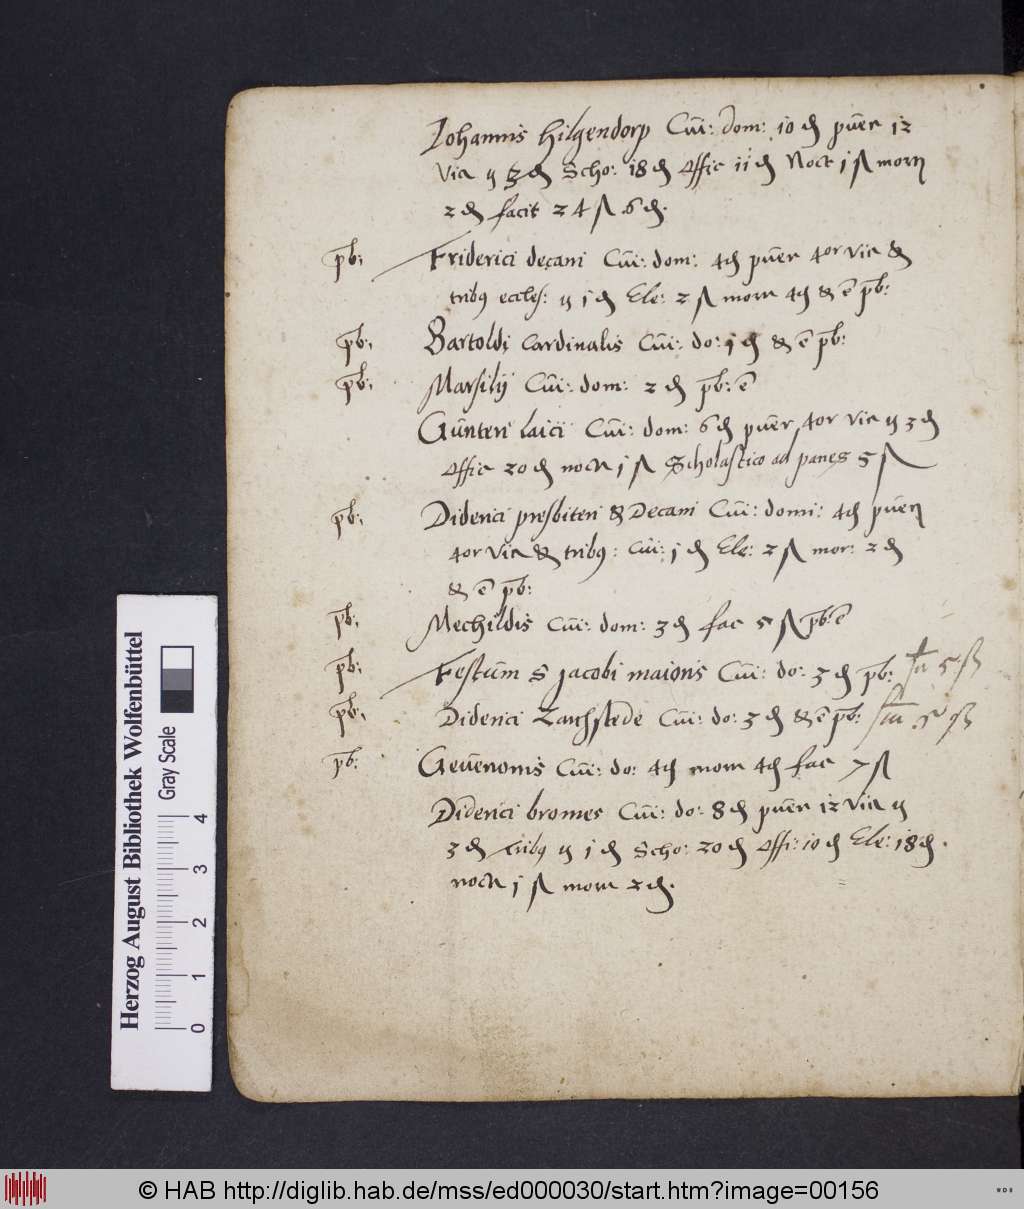 Johannis Hilgendorp Cui: dom: 10 ₰ puer 12
Vic ÿ 3 ₰ Scho: 18 ₰ Offic 11 ₰ Noct 1 ß morn
2 ₰ facit 24 ß 6 ₰.
pb: Friderici decani Cui: dom: 4 ₰ puer 4or vic &
tribus eccles: ÿ 1 ₰ Ele: 2 ß morn 4 ₰ & ē pb:
pb: Bartoldi Cardinalis Cui: do: 1 ₰ & ē pb:
pb: Marsilij Cui: dom: 2 ₰ pb: ē
Gunteri laici Cui: dom: 6 ₰ puer 4or vic ÿ 3 ₰
Offic 20 ₰ noct 1 ß Scholastico ad panes 5 ß
pb: Diderici presbiteri & Decani Cui: domi: 4 ₰ pueri
4or vic & tribus: Cui: 1 ₰ Ele: 2 ß mor: 2 ₰
& ē pb:
pb: Mechildis Cui: dom: 3 ₰ fac 5 ß pb: ē
pb: Festum S Jacobi maioris Cui: do: 3 ₰ pb: 5 ß
pb: Diderici Zarchstede Cui: do: 3 ₰ & ē pb: 5 ß
pb: Geuenonis Cui: do: 4 ₰ morn 4 ₰ fac 7 ß
Diderici bromes Cui: do: 8 ₰ puer 12 Vic ÿ
3 ₰ tribus ÿ 1 ₰ Scho: 20 ₰ Offi: 10 ₰ Ele: 18 ₰.
noct 1 ß morn 2 ₰.
Herzog August Bibliothek Wolfenbüttel
Gray Scale
0 1 2 3 4
© HAB http://diglib.hab.de/mss/ed000030/start.htm?image=00156